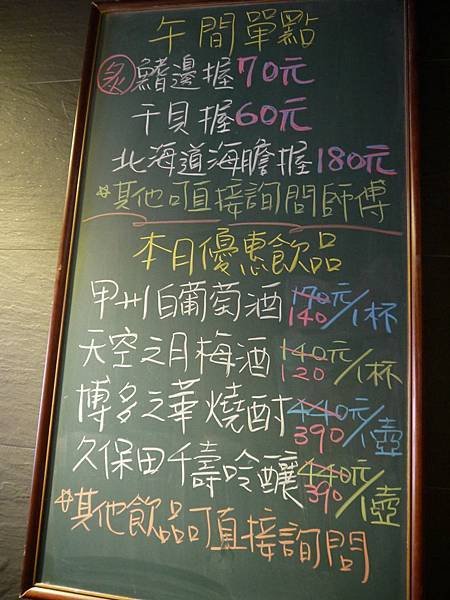 午間單點
炙 鰭邊握70元
干貝握60元
北海道海膽握180元
*其他可直接詢問師傅
本月優惠飲品
甲州白葡萄酒 170元 140/1杯
天空之月梅酒 140元 120/1杯
博多之華燒酎 440元 390/1壺
久保田千壽吟釀 440元 390/1壺
*其他飲品可直接詢問